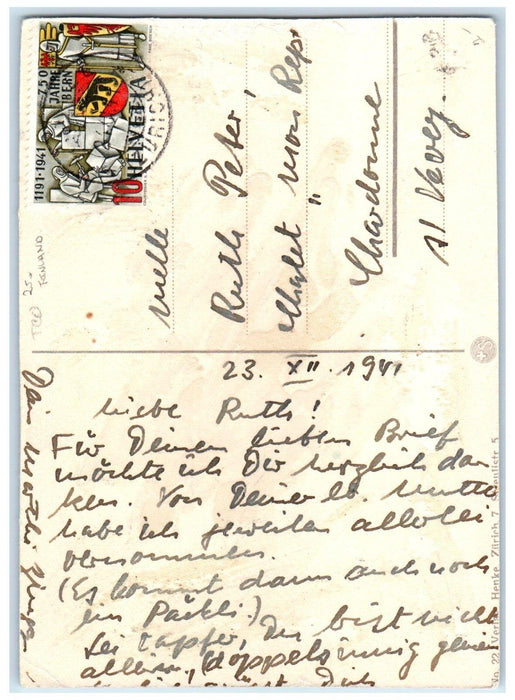 1191-1941
750
JAHRE
BERN
HELVETIA
10
ZÜRICH
Melle
Ruth Peter
Chalet "Mon Rep."
Chardonne
s/ Vevey.
TCP 25-
FENLAND
23. XII. 1941
Liebe Ruth!
Für Deinen lieben Brief
möchte ich Dir herzlich dan
ken. Von Deiner lb. Mutter
habe ich jeweilen allerlei
vernommen.
(Es kommt dann auch noch
ein Päckli.)
Sei tapfer, Du bist nicht
allein, (doppelsinnig
Dich
No. 22 Verl. Henke, Zürich 7, 5